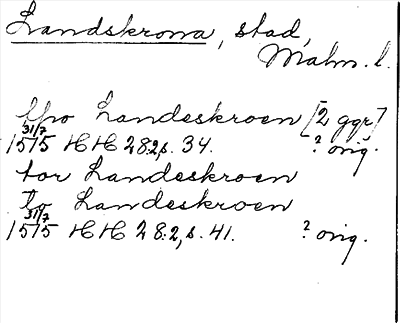 Landskrona, stad,
Malm. l.
tho Landeskroen [2 ggr]
31/7
1515 HH 28:2, s. 34. ? orig.
tor Landeskroen
to Landeskroen
31/7
1515 HH 28:2, s. 41. ? orig.